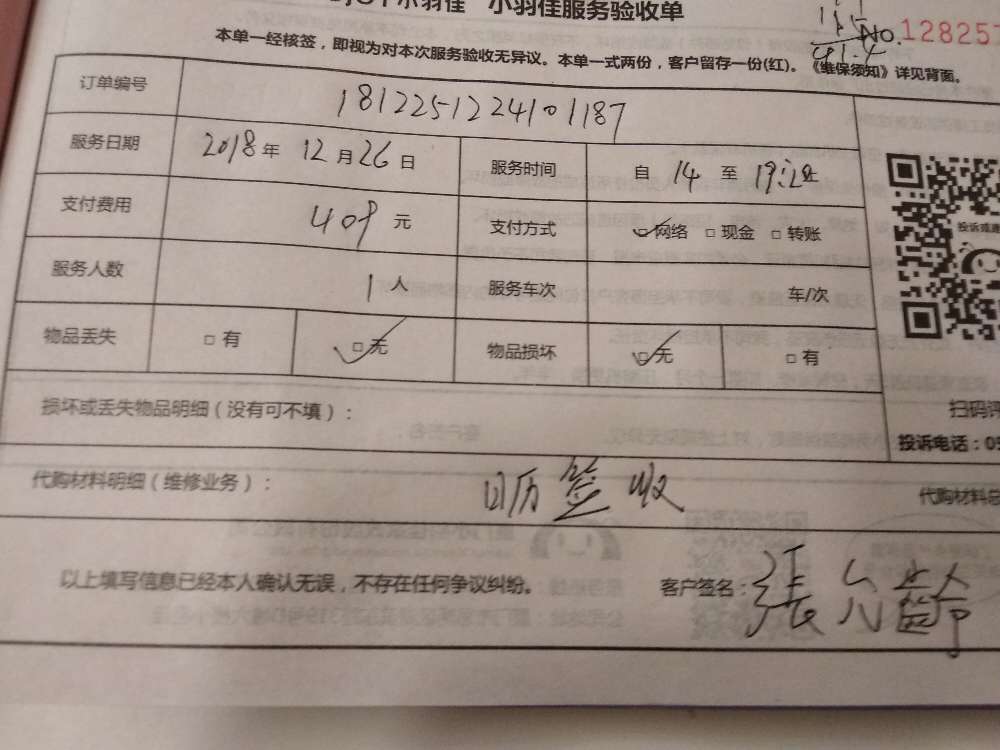 小羽佳服务验收单
NO. 128257
本单一经核签，即视为对本次服务验收无异议。本单一式两份，客户留存一份(红)。《维保须知》详见背面。
订单编号 1812251224101187
服务日期 2018年 12月26日 服务时间 自 14 至
支付费用 409 元 支付方式 网络 现金 转账
服务人数 1人 服务车次 车/次
物品丢失 有 无 物品损坏 无 有
损坏或丢失物品明细（没有可不填）：
扫码评
投诉电话：05
代购材料明细（维修业务）： 日历签收 代购材料总
以上填写信息已经本人确认无误，不存在任何争议纠纷。 客户签名：張